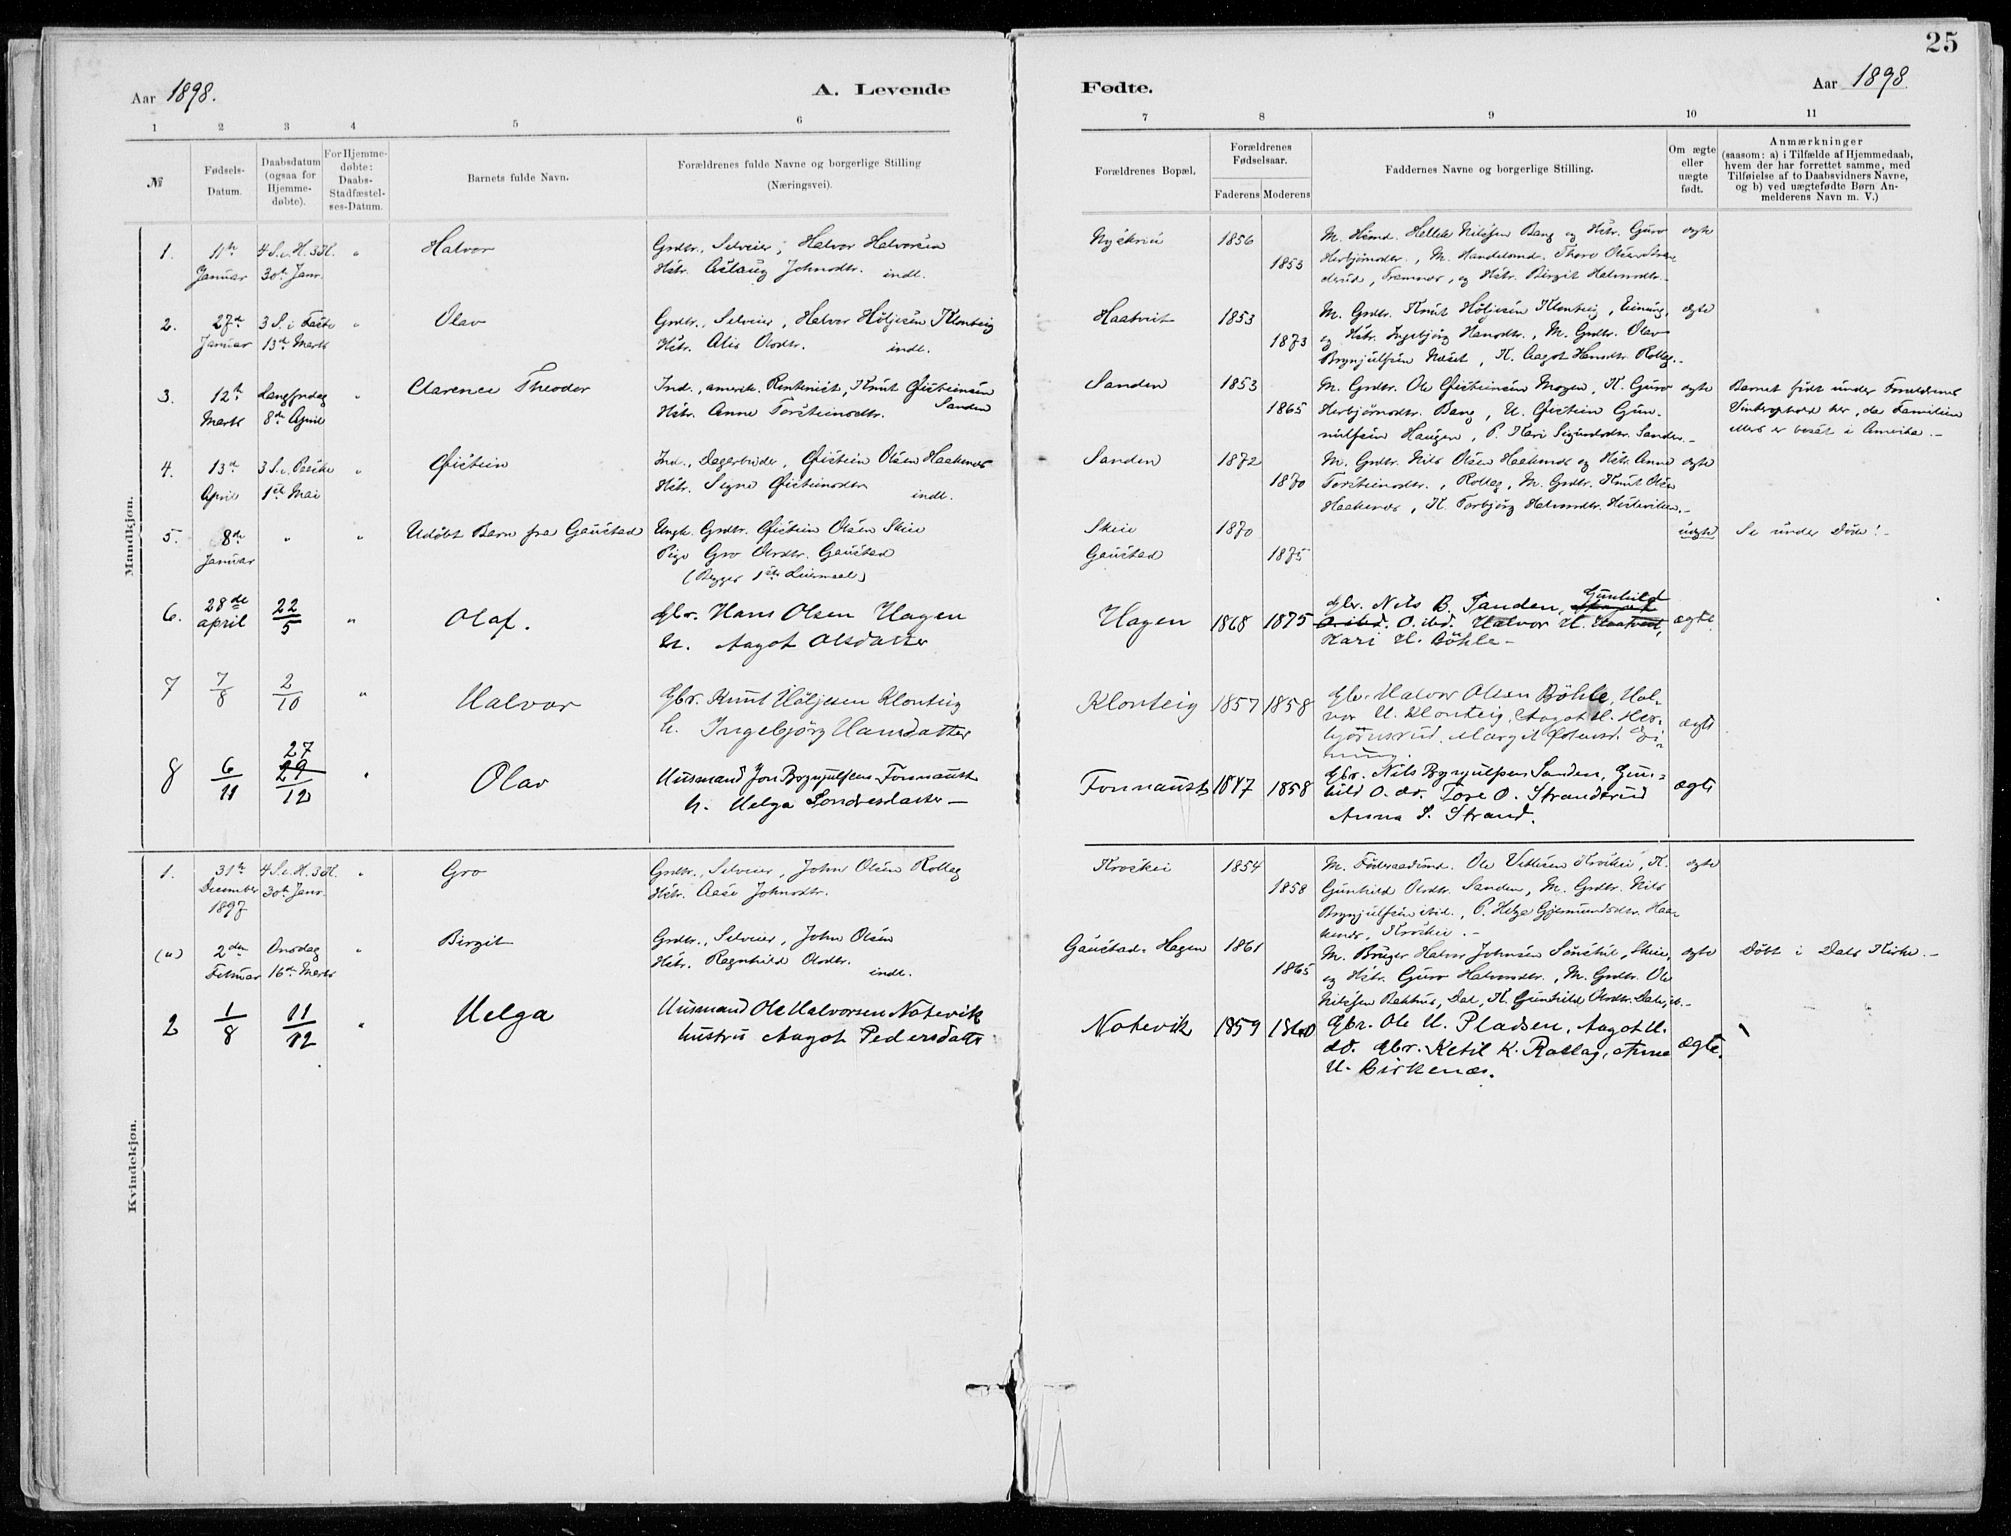 25
Aar 1898.
A. Levende
Fødte.
Aar 1898
1 2 3 4 5 6 7 8 9 10 11
№
Fødsels-
Datum.
Daabsdatum
(ogsaa for
Hjemme-
døbte).
For Hjemme-
døbte:
Daabs-
Stadfæstel-
ses-Datum.
Barnets fulde Navn.
Forældrenes fulde Navne og borgerlige Stilling
(Næringsvei).
Forældrenes Bopæl.
Forældrenes
Fødselsaar.
Faderens Moderens
Faddernes Navne og borgerlige Stilling.
Om ægte
eller
uægte
født.
Anmærkninger
(saasom: a) i Tilfælde af Hjemmedaab,
hvem der har forrettet samme, med
Tilføielse af to Daabsvidners Navne,
og b) ved uægtefødte Børn An-
melderens Navn m. V.)
Mandkjøn.
1. 11te Januar
4 S. e. H. 3 K. 30te Janr.
"
Halvor
Grdbr., Selveier, Halvor Halvorsen
Hstr. Aslaug Johnsdtr. indl.
1856
1853
M. Hsmd. Hellek Nilssen Bang og Hstr. Guro
Herbjørnsdtr., M. Handelsmd. Thore Olsen
og Hstr. Birgit Halvorsdtr.
ægte
2. 27de Januar
3 S. i Faste 13de Marts
"
Olav
Grdbr., Selveier, Halvor Høljesen Klonteig
Hstr. Olsdtr. indl.
Haatveit
1853
1873
M. Grdbr. Knut Høljesen Klonteig,
og Hstr. Ingebjørg Hansdtr., M. Grdbr. Olav
Brynjulfsen Næset, K. Aagot Hansdtr. Rollag.
ægte
3. 12te Marts
Langfredag 8de April
"
Clarence Theodor
Ind., amerik. Rentenist, Knut Øisteinsen Sanden
Hstr. Anne Torsteinsdtr.
Sanden
1853
1865
M. Grdbr. Ole Øisteinsen Mogen, K. Guro
Herbjørnsdtr. Bang, U. Øistein Gun-
nulfsen Haugen, P. Kari Sigurdsdtr. Sanden.
ægte
Barnet født under Forældrenes
Vinterophold her, da Familien
ellers er bosat i Amerika.
4. 13de April
3 S. e. Paaske 1ste Mai
"
Øistein
Ind., Dagarbeider, Øistein Olsen Haakenes
Hstr. Signe Øisteinsdtr. indl.
Sanden
1872
1870
M. Grdbr. Nils Olsen Haakenes og Hstr. Anne
Torsteinsdtr., Rollag, M. Grdbr. Knut Olsen
Haakenes, K. Torbjørg Halvorsdtr.
ægte
5. 8de Januar
"
"
Udøbt Barn fra Gaustad
Ungk. Grdbr. Øistein Olsen Skeie
Pige Gro Olsdtr. Gaustad
(Begges 1ste Leiermaal)
Skeie
Gaustad
1870
1875
uægte
Se under Døde!
6. 28de april
22/5
"
Olaf.
Gbr. Hans Olsen Hagen
h. Aagot Olsdatter
Hagen
1868 1875
Gbr. Nils B. Sanden, Gunhild
O. ibd. O. ibd. Halvor H. Haatveit,
Kari H. Bøhle
ægte
7 7/8
2/10
"
Halvor
Gbr. Knut Høljesen Klonteig
h. Ingebjörg Hansdatter
Klonteig
1857 1858
Gbr. Halvor Olsen Bøhle, Hal-
vor H. Klonteig, Aagot H. Her-
bjørnsrud, Margit
ægte
8 6/11
27 29/12
"
Olav
Husmand Jon Brynjulfsen Fonnaust
h. Helga Sondresdatter
Fonnaust
1847 1858
Gbr. Nils Brynjulfsen Sanden, Gun-
hild O. do. Tore O. Strandsrud
Anna S. Strand.
ægte
Kvindekjøn.
1. 31te December 1897
4 S. e. H. 3 K. 30te Janr.
"
Gro
Grdbr., Selveier, John Olsen Rollag
Hstr. Aase Johnsdtr.
Kroskei
1854
1858
M. Føderaadsmd. Ole Vetlesen Kroskei, K.
Gunhild Olsdtr. Sanden, M. Grdbr. Nils
Brynjulfsen ibid., P. Helge Gjermundsdtr. Haa-
kenes, Kroskei.
ægte
(u) 2den Februar
Onsdag 16de Marts
"
Birgit
Grdbr., Selveier, John Olsen
Hstr. Ragnhild Olsdtr. indl.
Gaustad, Hagen
1861
1865
M. Bruger Halvor Johnsen Skeie,
og Hstr. Guro Halvorsdtr., M. Grdbr. Ole
Nilssen Bakhus, Dal, K. Gunhild Olsdtr.
ægte
Døbt i Dals Kirke.
2 1/8
11/12
"
Helga
Husmand Ole Halvorsen Notevik
hustru Aagot Pedersdatter
Notevik
1859 1860
Gbr. Ole H. Pladsen, Aagot H.
do. Gbr. Ketil K. Rollag, Anne
H. Birkenæs.
ægte.